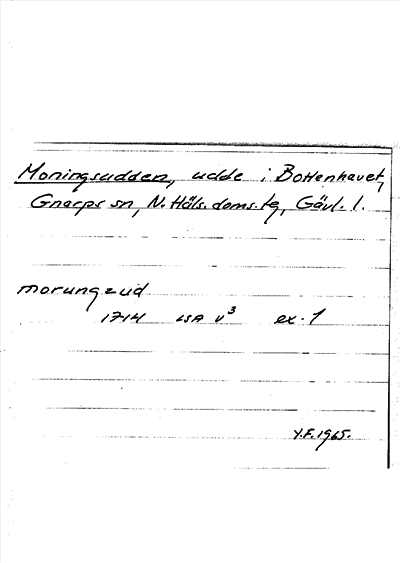 Moningsudden, udde i Bottenhavet,
Gnarps sn, N. Häls. doms. tg, Gävl. l.
morungzud
1714 LSA V³ ex. 1
Y.F. 1965.